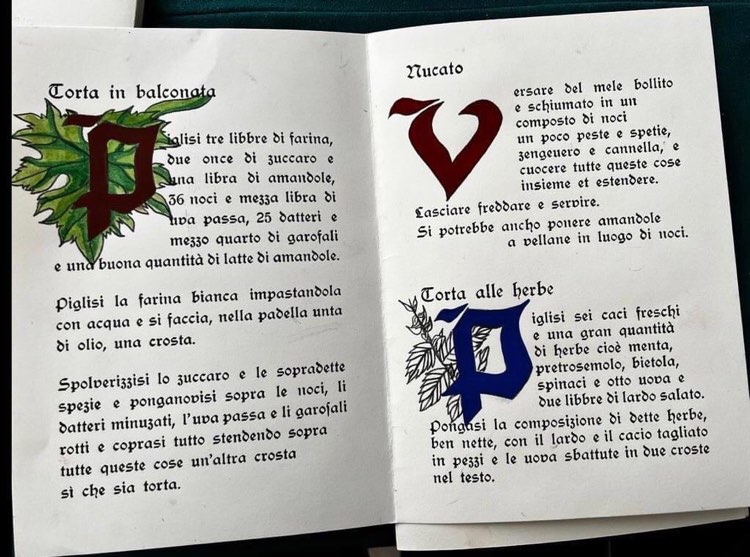 Torta in balconata
Piglisi tre libbre di farina,
due once di zuccaro e
una libra di amandole,
36 noci e mezza libra di
uva passa, 25 datteri e
mezzo quarto di garofali
e una buona quantità di latte di amandole.
Piglisi la farina bianca impastandola
con acqua e si faccia, nella padella unta
di olio, una crosta.
Spolverizzisi lo zuccaro e le sopradette
spezie e ponganovisi sopra le noci, li
datteri minuzati, l'uva passa e li garofali
rotti e coprasi tutto stendendo sopra
tutte queste cose un'altra crosta
sì che sia torta.
Nucato
Versare del mele bollito
e schiumato in un
composto di noci
un poco peste e spetie,
zengeuero e cannella, e
cuocere tutte queste cose
insieme et estendere.
Lasciare freddare e servire.
Si potrebbe ancho ponere amandole
a vellane in luogo di noci.
Torta alle herbe
Piglisi sei caci freschi
e una gran quantità
di herbe cioè menta,
pretrosemolo, bietola,
spinaci e otto uova e
due libbre di lardo salato.
Pongasi la composizione di dette herbe,
ben nette, con il lardo e il cacio tagliato
in pezzi e le uova sbattute in due croste
nel testo.